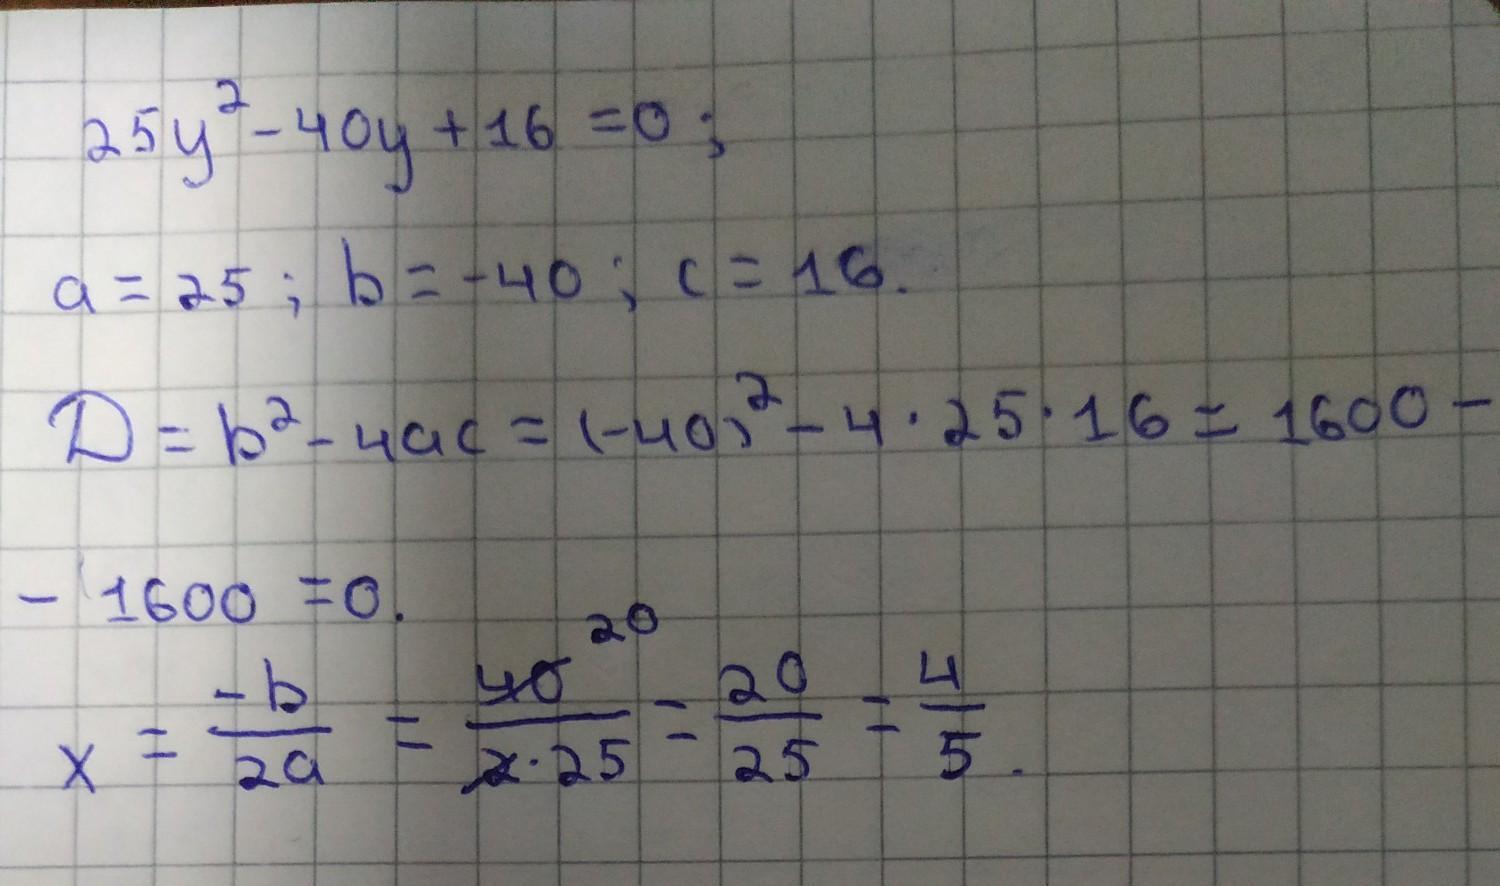 25y² - 40y + 16 = 0;
a = 25; b = -40; c = 16.
D = b² - 4ac = (-40)² - 4 · 25 · 16 = 1600 -
- 1600 = 0.
x = -b/2a = 40 20/2·25 = 20/25 = 4/5.